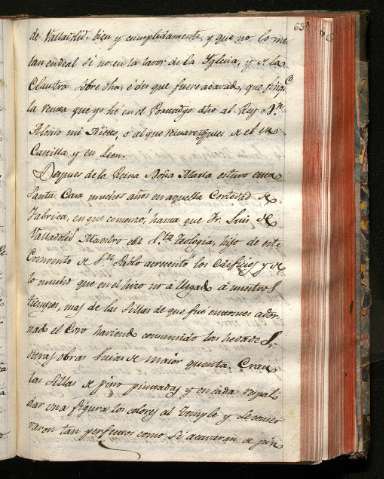 de Valladolid, bien y cumplidamente, y que no lo me
tan en deal si no en la lavor de la Iglesia, y de la
Claustra sobre dha, é des que fuere acavada, que finq.
la renta que yo hé en el Portazgo dho al Rey Dn.
Alonso mio Nieto, o al que reinare despues de el en
Castilla y en Leon.
Despues de la Reina Doña Maria estuvo esta
Santa Casa muchos años en aquella Cortedad de
Fabrica, en que comenzó, hasta que Fr. Luis de
Valladolid Maestro en Sta. Teologia, hijo de este
Convento de Sn. Pablo aumentó los Edificios, y de
lo mucho que en el hizo no a llegado á nuestros
tiempos, mas de las Sillas de que fue entonces ador
nado el Coro haviendo consumido los hados
otras obras suias de maior quenta. Eran
las Sillas de pino pintadas y en cada respal
dar una figura los colores al temple y se conser
varon tan perfectos como si acavaran de pin